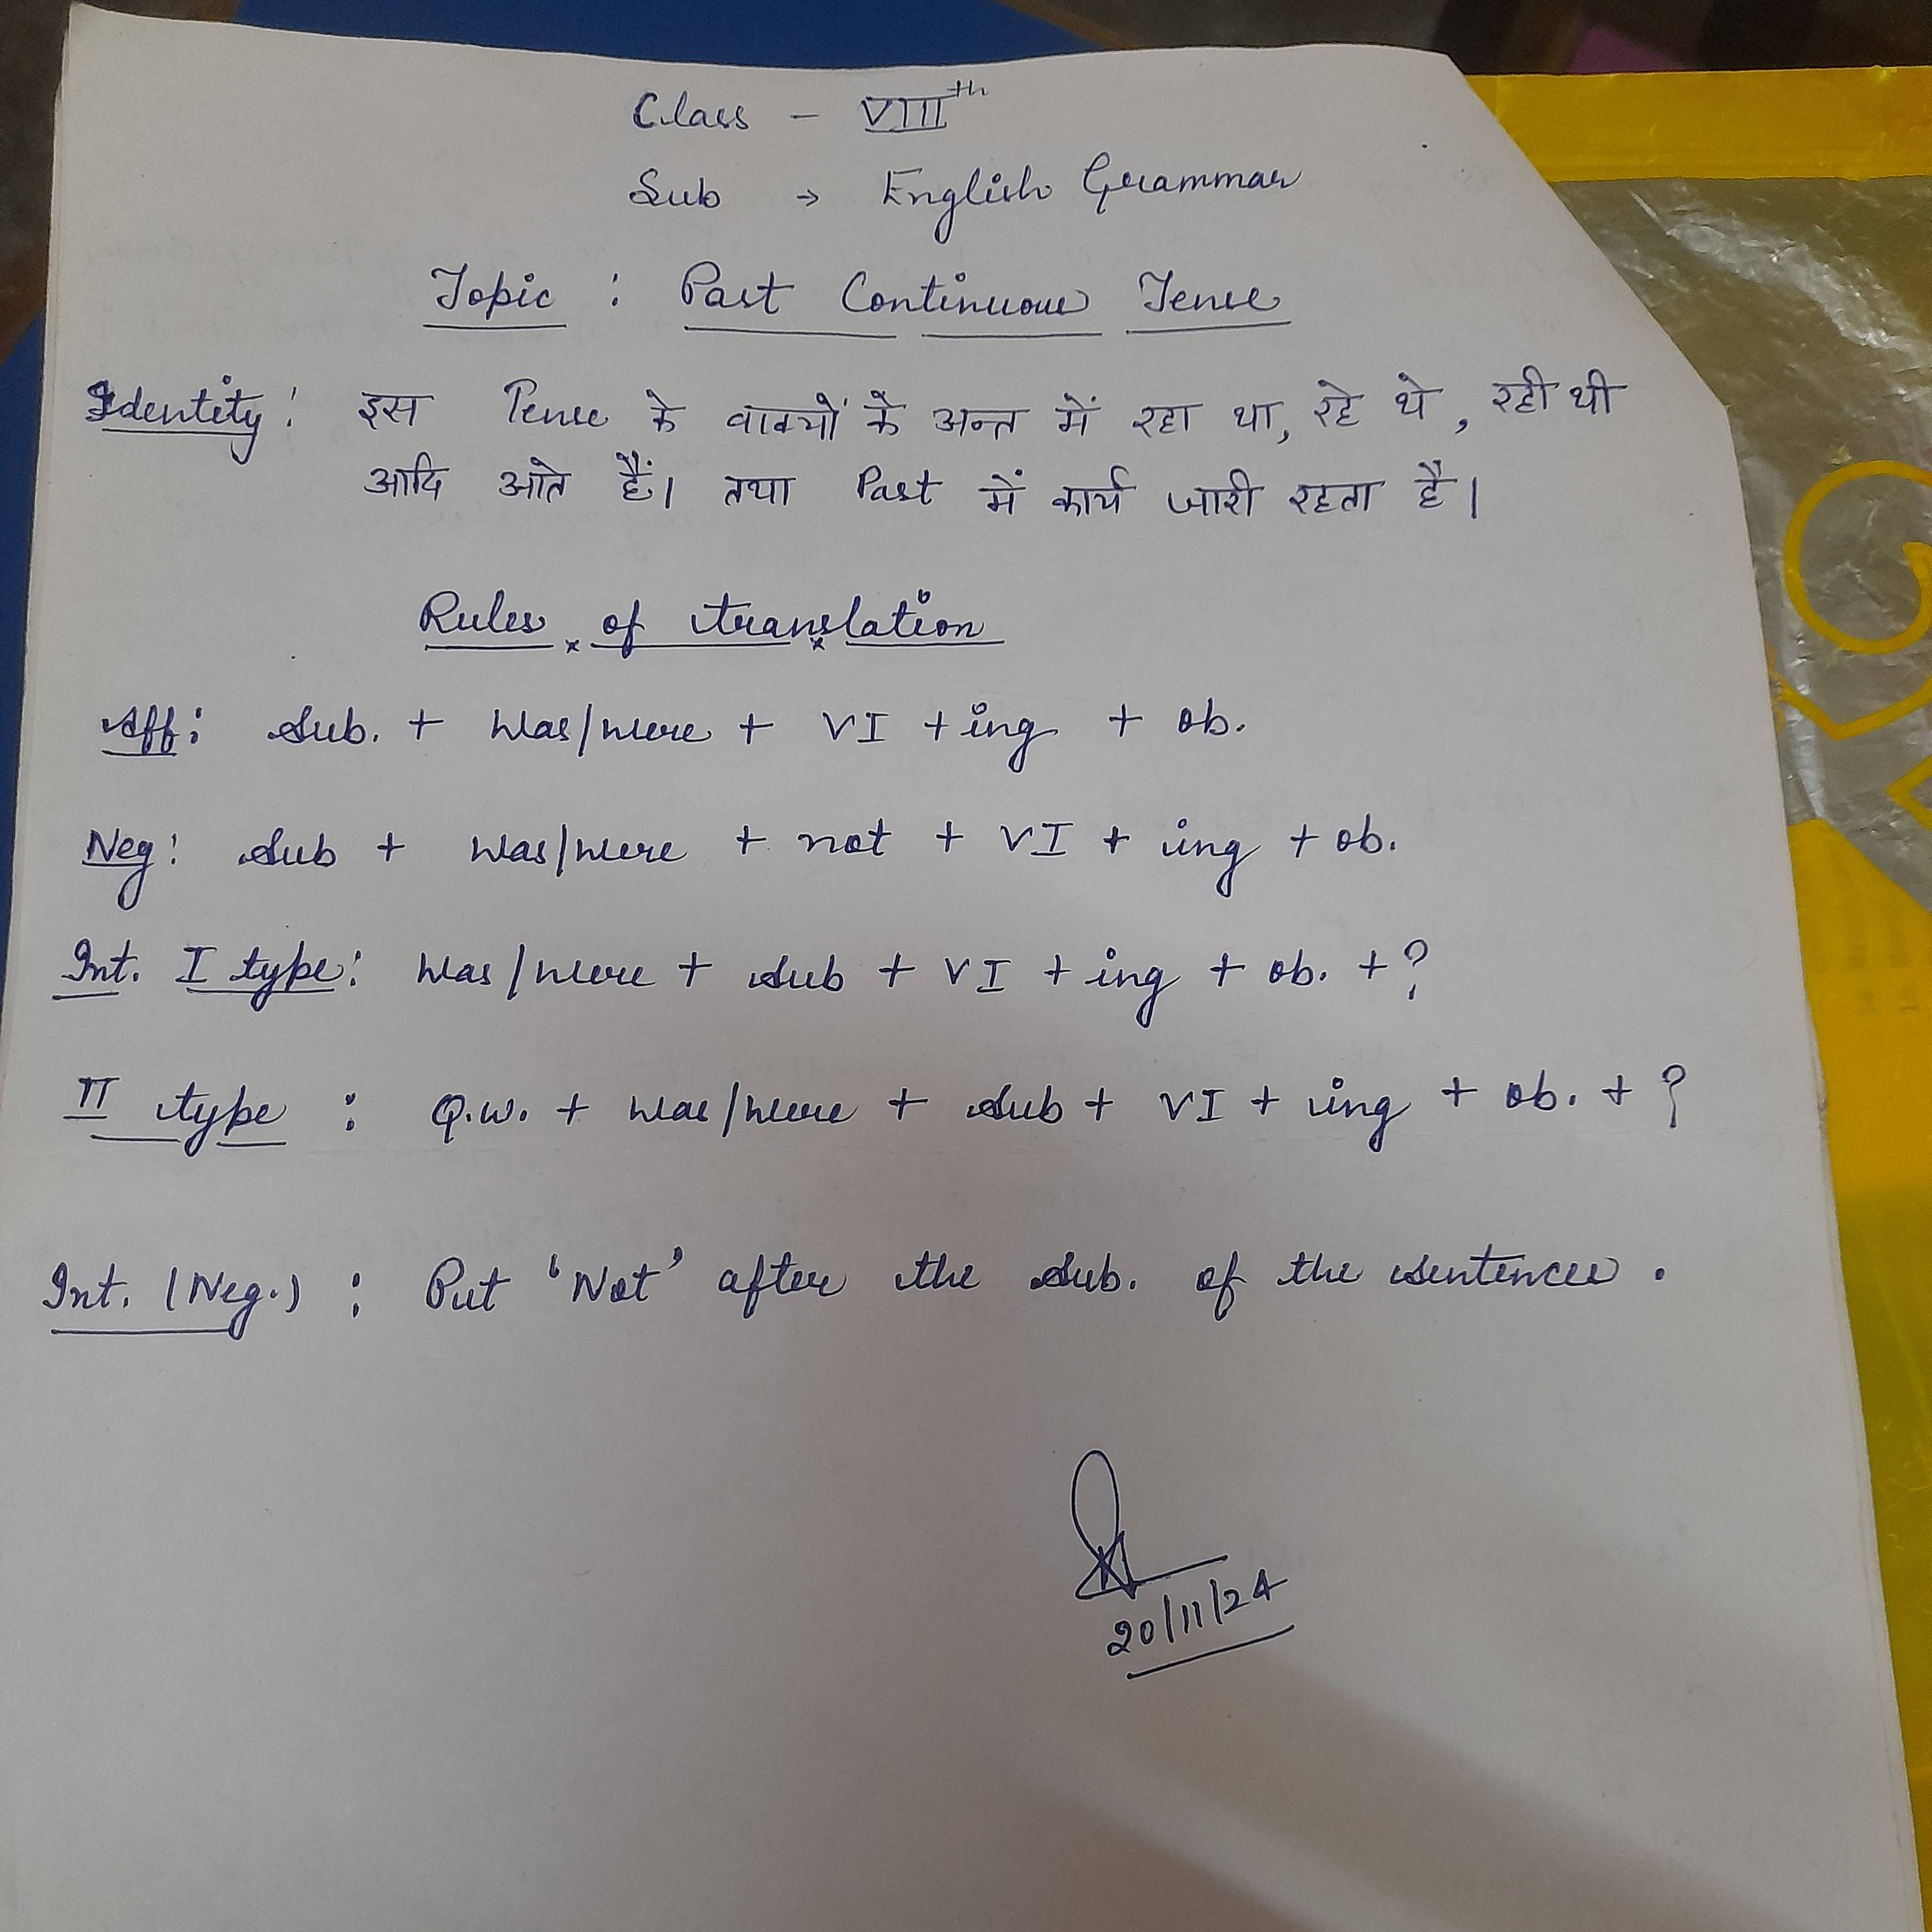 Class - VIII th
Sub → English Grammar
Topic : Past Continuous Tense
Identity : इस Tense के वाक्यों के अन्त में रहा था, रहे थे, रही थी
आदि आते हैं। तथा Past में कार्य जारी रहता है।
Rules of translation
Aff : Sub. + was/were + VI + ing + ob.
Neg : Sub + was/were + not + VI + ing + ob.
Int. I type : Was/were + sub + VI + ing + ob. + ?
II type : Q.w. + was/were + sub + VI + ing + ob. + ?
Int. (Neg.) : Put 'Not' after the sub. of the sentences.
20/11/24